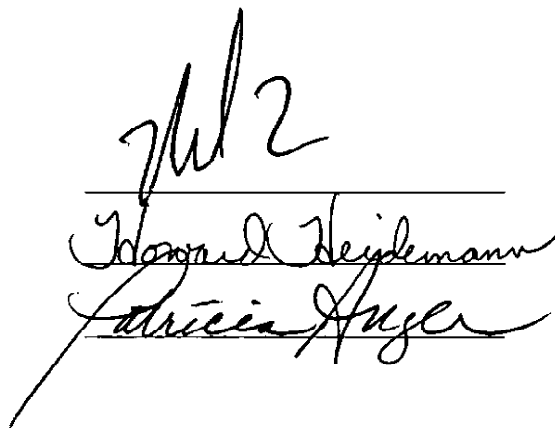 Howard Heidemann
Patricia Auger